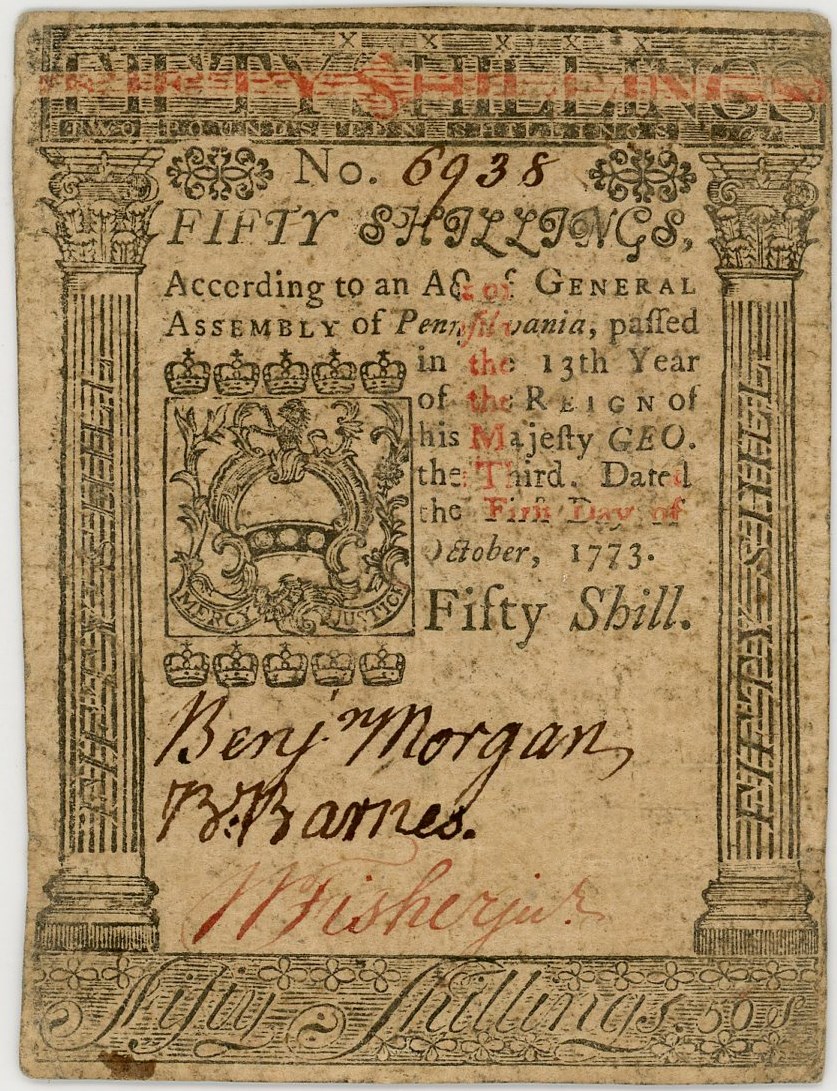 X X X X X
FIFTY SHILLINGS
TWO POUNDS TEN SHILLINGS
No. 6938
FIFTY SHILLINGS,
According to an Act of GENERAL
ASSEMBLY of Pennſilvania, paſſed
in the 13th Year
of the REIGN of
his Majeſty GEO.
the Third. Dated
the Firſt Day of
October, 1773.
Fifty Shill.
MERCY JUSTICE
Benjn Morgan,
B: Barnes.
W Fisher junr
FIFTY SHILL
FIFTY SHILL
Fifty Shillings. 50s